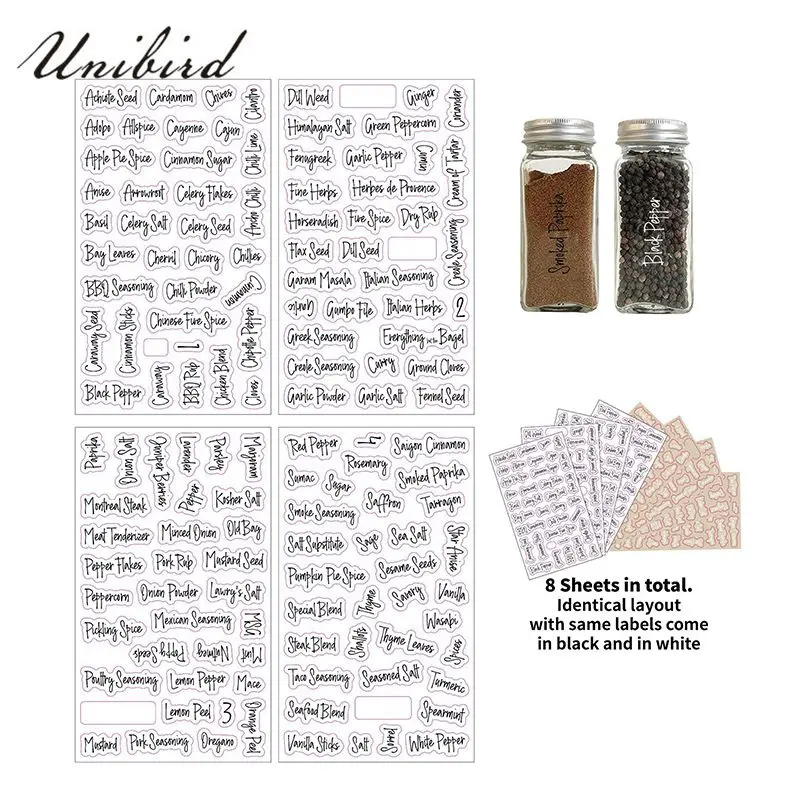 Unibird
Achiote Seed Cardamom Chives Cilantro
Adobo Allspice Cayenne Cajun
Chili Lime
Apple Pie Spice Cinnamon Sugar
Anise Arrowroot Celery Flakes
Ancho Chili
Basil Celery Salt Celery Seed
Bay Leaves Chervil Chicory Chilies
BBQ Seasoning Chili Powder Cinnamon
Caraway Seed Cinnamon Sticks Chinese Five Spice
Chipotle Pepper
1
Black Pepper Caraway BBQ Rub Chicken Blend Cloves
Dill Weed Ginger Coriander
Himalayan Salt Green Peppercorn
Fenugreek Garlic Pepper Cumin Cream of Tartar
Fine Herbs Herbes de Provence
Horseradish Five Spice Dry Rub
Creole Seasoning
Flax Seed Dill Seed
Garam Masala Italian Seasoning
Garlic Gumbo File Italian Herbs 2
Greek Seasoning Everything but the Bagel
Creole Seasoning Curry Ground Cloves
Garlic Powder Garlic Salt Fennel Seed
Paprika Onion Salt Juniper Berries Lavender Parsley Marjoram
Montreal Steak Pepper Kosher Salt
Meat Tenderizer Minced Onion Old Bay
Pepper Flakes Pork Rub Mustard Seed
Peppercorn Onion Powder Lawry's Salt
Pickling Spice Mexican Seasoning MSG
Poppy Seeds Nutmeg Mint
Poultry Seasoning Lemon Pepper Mace
Lemon Peel 3 Orange Peel
Mustard Pork Seasoning Oregano
Red Pepper 4 Saigon Cinnamon
Rosemary
Sumac Sugar Smoked Paprika
Smoke Seasoning Saffron Tarragon
Salt Substitute Sage Sea Salt Star Anise
Pumpkin Pie Spice Sesame Seeds
Special Blend Thyme Savory Vanilla
Wasabi
Steak Blend Shallots Thyme Leaves Spices
Taco Seasoning Seasoned Salt Turmeric
Seafood Blend Spearmint
Vanilla Sticks Salt Sorrel White Pepper
Smoked Paprika
Black Pepper
8 Sheets in total.
Identical layout
with same labels come
in black and in white